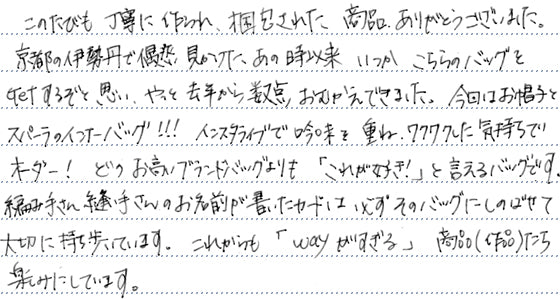 このたびも 丁寧に 作られ、梱包された 商品、ありがとうございました。
京都の伊勢丹で偶然 見かけた、あの時以来 いつか こちらのバッグを
getするぞと思い、やっと 去年から 数点 おむかえできました。今回はお帽子と
スパーラのイコナーバッグ!!! インスタライブで吟味を重ね、ワクワクした気持ちで
オーダー! どの お高いブランドバッグよりも 「これが好き!」と言えるバッグです。
編み手さん 縫い手さんのお名前が書いたカードは 必ず そのバッグに しのばせて
大切に 持ち歩いています。これからも 「wayがすぎる」 商品(作品)たち
楽しみにしています。